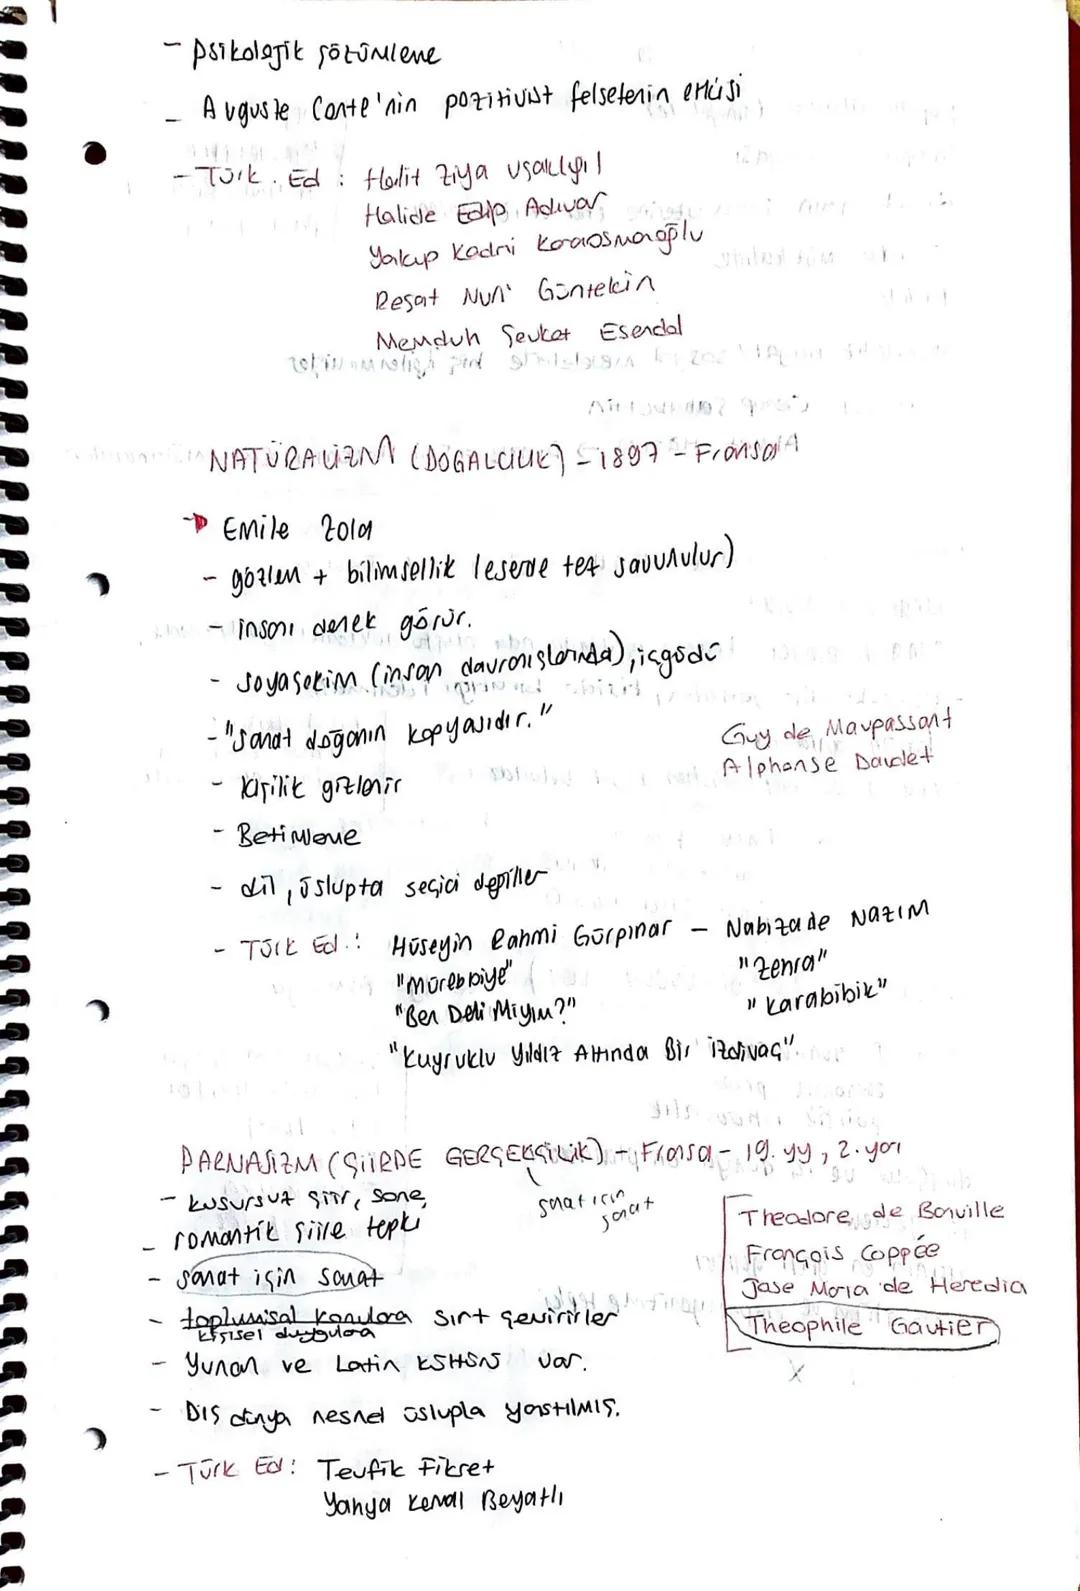 - psikolojik çözümleme
- Auguste Comte'nin pozitivist felsefenin etkisi
- Türk. Ed : Halit Ziya Uşaklıgil
Halide Edip Adıvar
Yakup Kadri Karaosmanoğlu
Reşat Nuri Güntekin
Memduh Şevket Esendal
NATÜRALİZM (DOĞALCILIK) - 1897 - Fransa
Emile Zola
- gözlem + bilimsellik (eserde tez savunulur)
- insanı denek görür.
- soyaçekim (insan davranışlarında), içgüdü
- "Sanat doğanın kopyasıdır."
Guy de Maupassant
Alphonse Daudet
- kişilik gizlenir
- Betimleme
- dil, üslupta seçici değiller
- Türk Ed.: Hüseyin Rahmi Gürpınar - Nabizade Nazım
"Mürebbiye" "Zehra"
"Ben Deli Miyim?" "Karabibik"
"Kuyruklu Yıldız Altında Bir İzdivaç"
PARNASİZM (ŞİİRDE GERÇEKÇİLİK) - Fransa - 19. yy, 2. yarı
sanat için sanat
- kusursuz şiir, sone,
- romantik şiire tepki
- sanat için sanat
- toplumsal konulara sırt çevirirler
kişisel duygulara
- Yunan ve Latin var.
- Dış dünya nesnel üslupla yansıtılmış.
Theodore de Banville
François Coppée
Jose Maria de Heredia
Theophile Gautier
x
- Türk Ed: Tevfik Fikret
Yahya Kemal Beyatlı